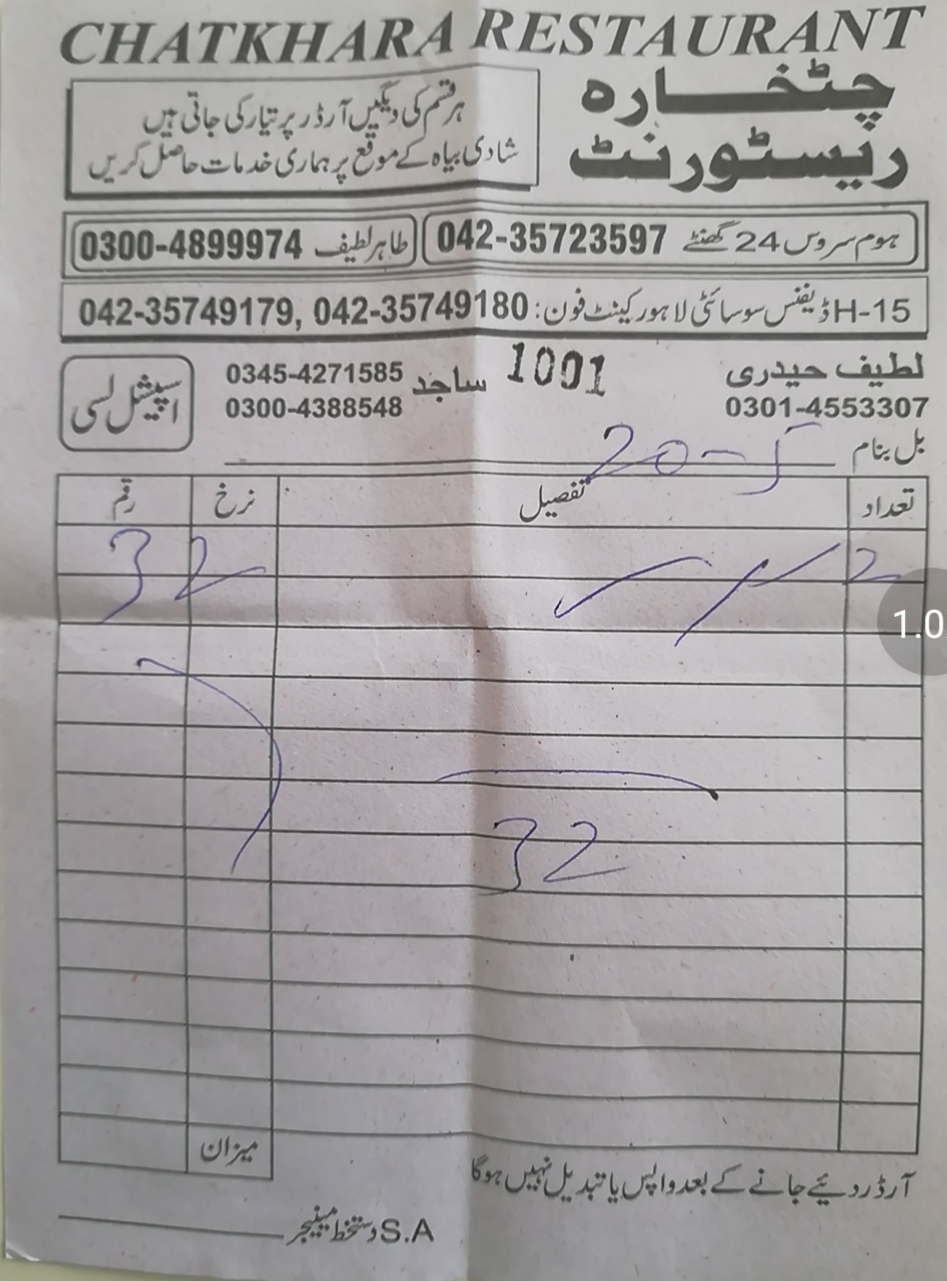 CHATKHARA RESTAURANT
چٹخارہ
ریسٹورنٹ
ہر قسم کی دیگیں آرڈر پر تیار کی جاتی ہیں
شادی بیاہ کے موقع پر ہماری خدمات حاصل کریں
ہوم سروس 24 گھنٹے 042-35723597
طاہر لطیف 0300-4899974
H-15 ڈیفنس سوسائٹی لاہور کینٹ فون: 042-35749179, 042-35749180
لطیف حیدری
0301-4553307
1001
ساجد 0345-4271585
0300-4388548
اسپیشل لسی
بل بنام
تعداد تفصیل نرخ رقم
2 32
32
میزان
آرڈر دئیے جانے کے بعد واپس یا تبدیل نہیں ہوگا
S.A دستخط مینیجر
1.0